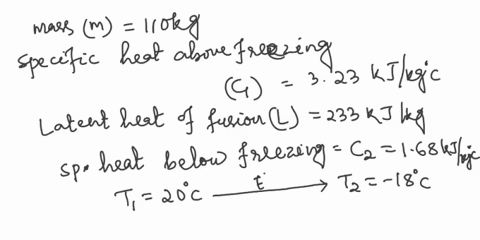 mass (m) = 110kg
specific heat above freezing
(C₁) = 3.23 KJ/kg°c
Latent heat of fusion (L) = 233 KJ/kg
sp. heat below freezing = C₂ = 1.68 KJ/kg°c
T₁ = 20°c ⟶ T₂ = -18°c